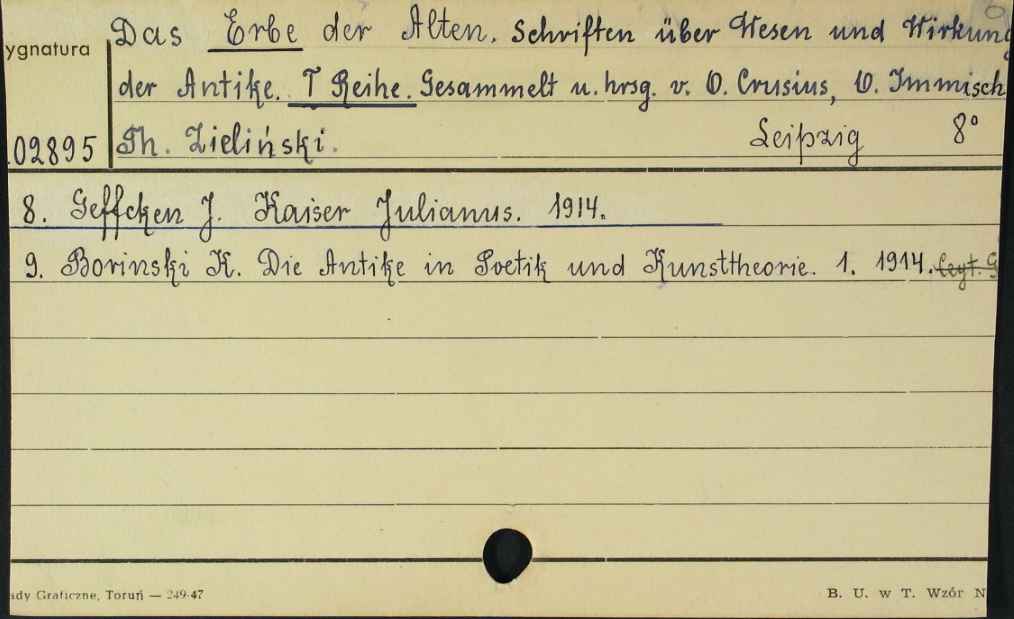 Das Erbe der Alten. Schriften über Wesen und Wirkung
ygnatura
der Antike. I Reihe. Gesammelt u. hrsg. v. O. Crusius, O. Immisch
02895 Th. Zieliński. Leipzig 8°
8. Geffcken J. Kaiser Julianus. 1914.
9. Borinski K. Die Antike in Poetik und Kunsttheorie. 1. 1914.
ady Graficzne, Toruń — 249-47
B. U. w T. Wzór N